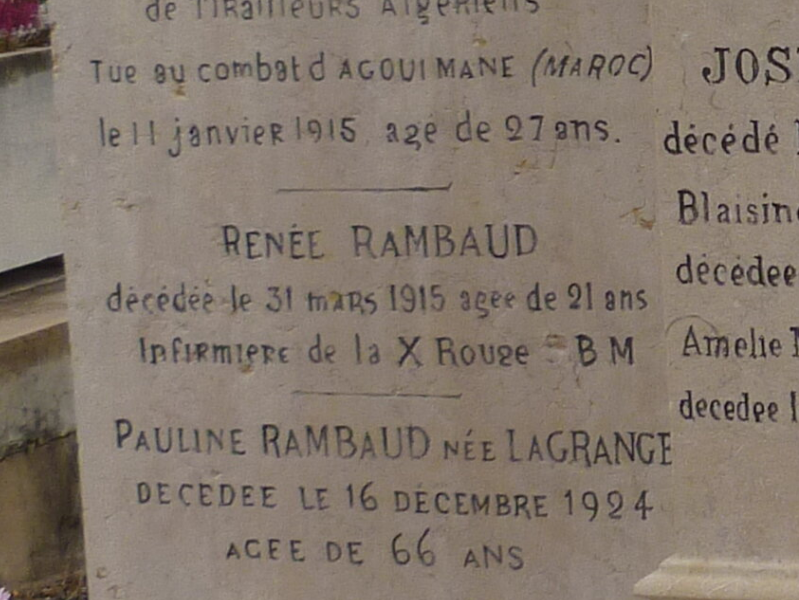 de TIRAILLEURS ALGERIENS
Tue au combat d AGOUIMANE (MAROC)
le 11 janvier 1915, age de 27 ans.
RENÉE RAMBAUD
décédée le 31 mars 1915 agee de 21 ans
Infirmiere de la X Rouge S B M
PAULINE RAMBAUD NÉE LAGRANGE
DECEDEE LE 16 DÉCEMBRE 1924
AGEE DE 66 ANS
décédé
décédée
Amelie
decedee